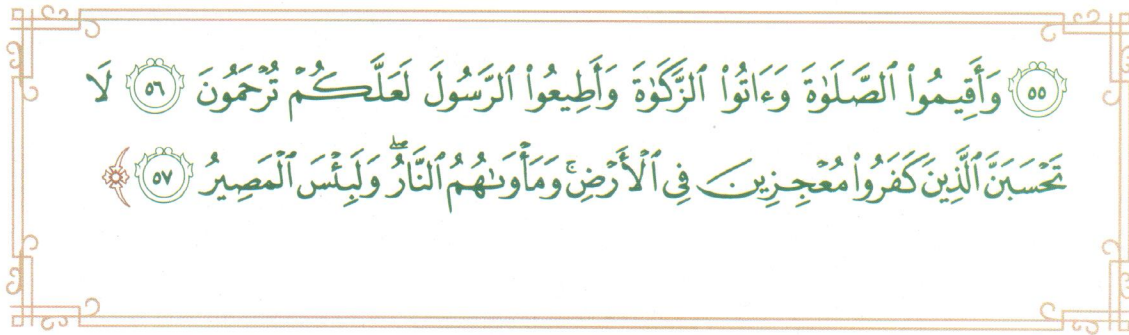 ٥٥ وَأَقِيمُوا۟ ٱلصَّلَوٰةَ وَءَاتُوا۟ ٱلزَّكَوٰةَ وَأَطِيعُوا۟ ٱلرَّسُولَ لَعَلَّكُمْ تُرْحَمُونَ ٥٦ لَا
تَحْسَبَنَّ ٱلَّذِينَ كَفَرُوا۟ مُعْجِزِينَ فِى ٱلْأَرْضِ ۚ وَمَأْوَىٰهُمُ ٱلنَّارُ ۖ وَلَبِئْسَ ٱلْمَصِيرُ ٥٧